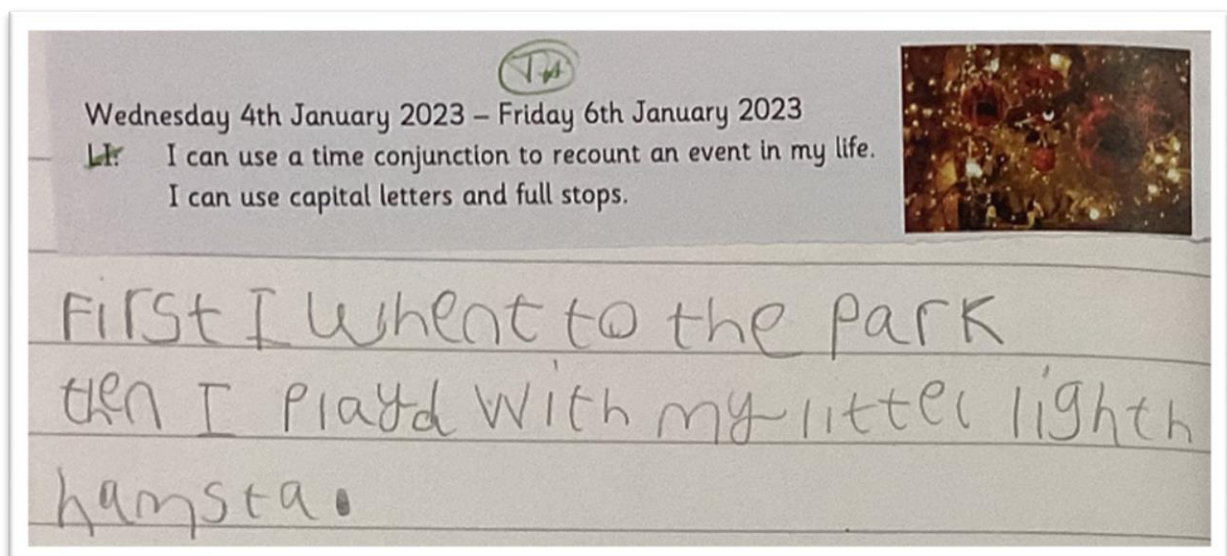 TA
Wednesday 4th January 2023 – Friday 6th January 2023
LI: I can use a time conjunction to recount an event in my life.
I can use capital letters and full stops.
First I whent to the park
then I playd with my littel lighth
hamsta.